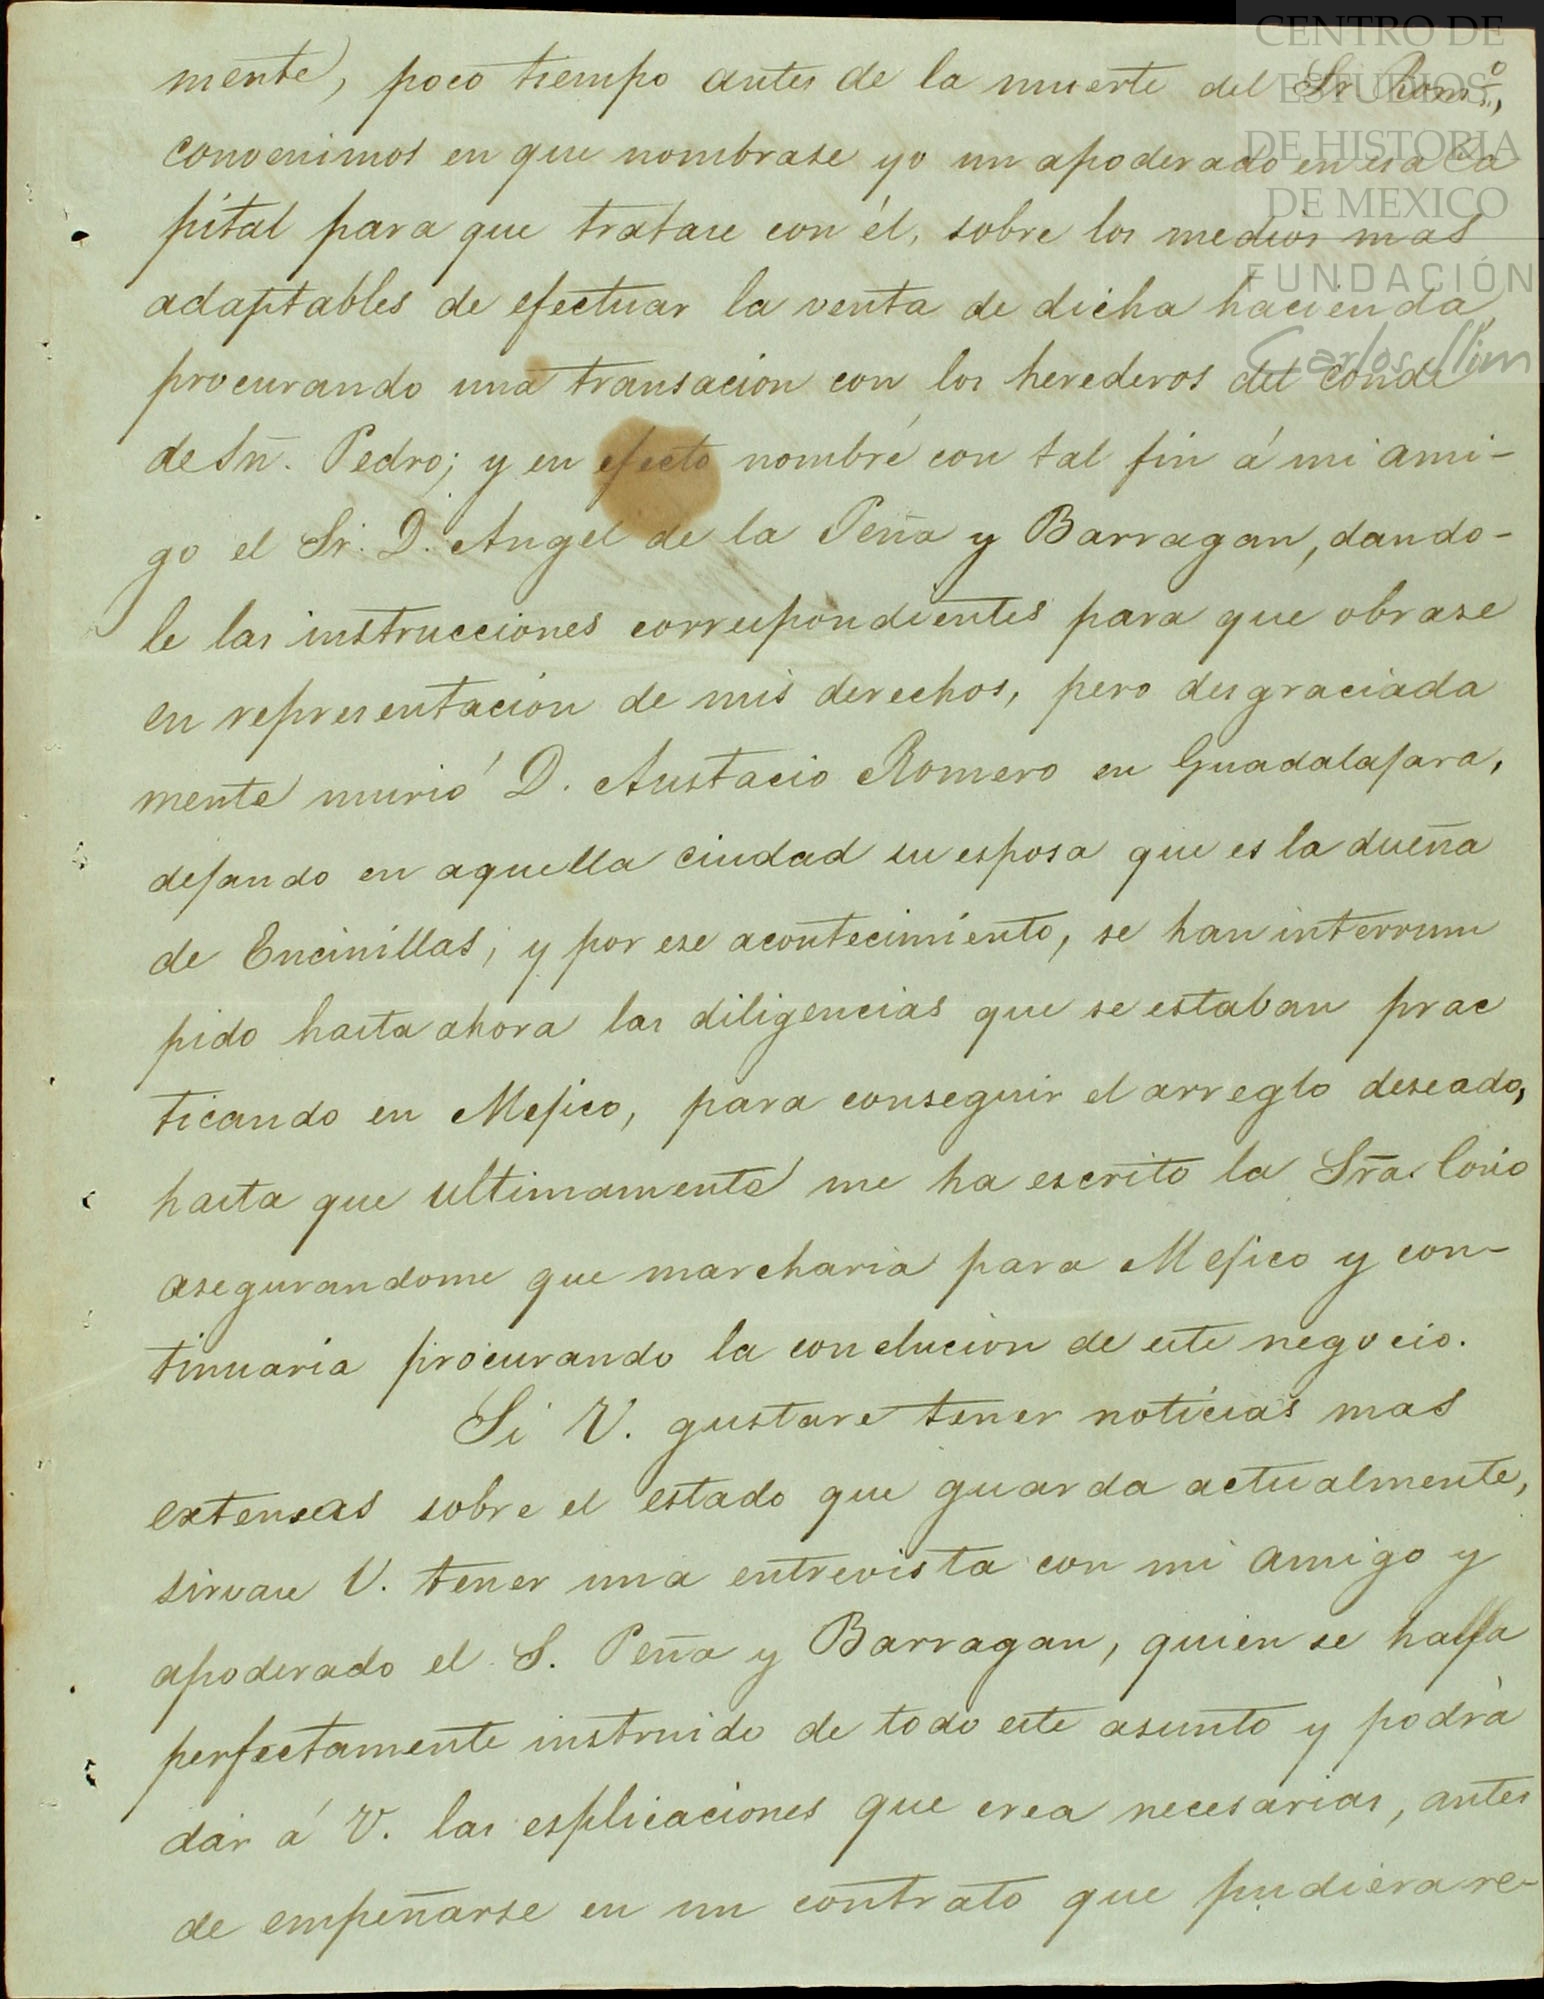 CENTRO DE
ESTUDIOS
DE HISTORIA
DE MEXICO
FUNDACIÓN
Carlos Slim
mente, poco tiempo antes de la muerte del Sr. Rom.º,
convenimos en que nombrase yo un apoderado en esa Ca
pital para que tratase con él, sobre los medios mas
adaptables de efectuar la venta de dicha hacienda,
procurando una transacion con los herederos del conde
de Sn̄. Pedro; y en efecto nombré con tal fin á mi ami-
go el Sr. D. Angel de la Peña y Barragan, dando-
le las instrucciones correspondientes para que obrase
en representación de mis derechos, pero desgraciada
mente murió D. Austacio Romero en Guadalajara,
dejando en aquella ciudad su esposa que es la dueña
de Encinillas; y por ese acontecimiento, se han interrum
pido hasta ahora las diligencias que se estaban prac
ticando en Mejico, para conseguir el arreglo deseado,
hasta que ultimamente me ha escrito la Sra̅. Cosio
asegurandome que marcharia para Mejico y con-
tinuaria procurando la conclucion de este negocio.
Si V. gustare tener noticias mas
extensas sobre el estado que guarda actualmente,
sirvase V. tener una entrevista con mi amigo y
apoderado el S. Peña y Barragan, quien se halla
perfectamente instruido de todo este asunto y podrà
dar á V. las esplicaciones que crea necesarias, antes
de empeñarse en un contrato que pudiera re-